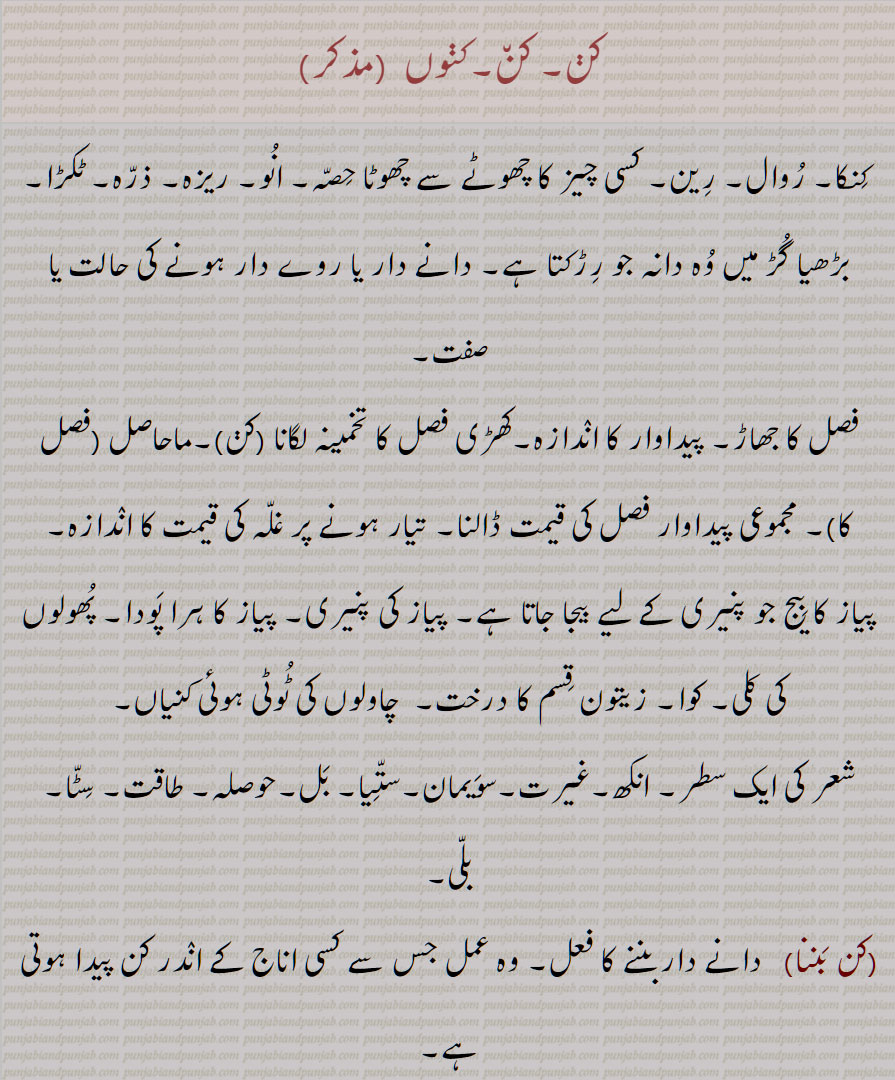 کݨ۔ کݨّ۔ کݨوں (مذکر)
کِنکا۔ رُوال۔ رِین۔ کسی چیز کا چھوٹے سے چھوٹا حِصّہ۔ انُو۔ ریزہ۔ ذرّہ۔ ٹکڑا۔
بڑھیا گُڑ میں وُہ دانہ جو رِڑکتا ہے۔ دانے دار یا روے دار ہونے کی حالت یا
صفت۔
فصل کا جھاڑ۔ پیداوار کا انْدازہ۔ کھڑی فصل کا تخمینہ لگانا (کݨ)۔ ماحاصل (فصل
کا)۔ مجموعی پیداوار فصل کی قیمت ڈالنا۔ تیار ہونے پر غلّہ کی قیمت کا انْدازہ۔
پیاز کا بِیج جو پنیری کے لیے بیجا جاتا ہے۔ پیاز کی پنیری۔ پیاز کا ہرا پَودا۔ پُھولوں
کی کلی۔ کوا۔ زیتون قِسم کا درخت۔ چاولوں کی ٹُوٹی ہوئی کنیاں۔
شعر کی ایک سطر۔ انکھ۔ غیرت۔ سوَیمان۔ ستِّیا۔ بَل۔ حوصلہ۔ طاقت۔ سِٹّا۔
بلّی۔
(کن بَننا) دانے دار بننے کا فعل۔ وہ عمل جس سے کسی اناج کے انْدر کن پیدا ہوتی
ہے۔
punjabiandpunjab.com